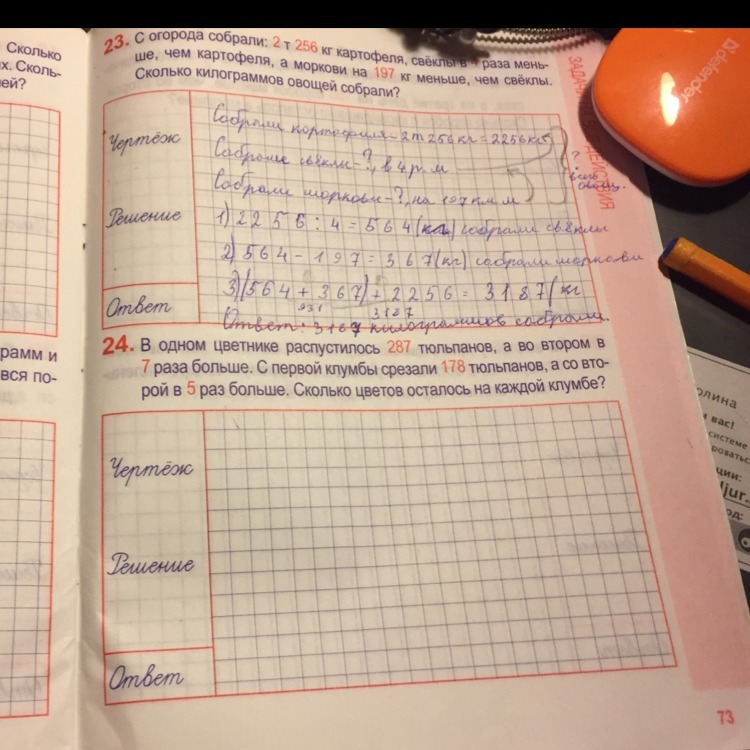 Сколько
х. Сколь-
ей?
23. С огорода собрали: 2 т 256 кг картофеля, свёклы в 4 раза мень-
ше, чем картофеля, а моркови на 197 кг меньше, чем свёклы.
Сколько килограммов овощей собрали?
Чертёж
Собрали картофеля - 2т 256 кг = 2256 кг
Собрали свёклы - ?, в 4 р. м
Собрали моркови - ?, на 197 кг м
?
всего
овощ.
Решение
1) 2256 : 4 = 564 (кг) собрали свёклы
2) 564 - 197 = 367 (кг) собрали моркови
3) (564 + 367) + 2256 = 3187 (кг
931 3187
Ответ
Ответ: 3187 килограммов собрали.
рамм и
вся по-
24. В одном цветнике распустилось 287 тюльпанов, а во втором в
7 раза больше. С первой клумбы срезали 178 тюльпанов, а со вто-
рой в 5 раз больше. Сколько цветов осталось на каждой клумбе?
Чертёж
Решение
Ответ
73
ДЕЙСТВИЯ
defender
олина
вас!
системе
ции:
djur.
од: